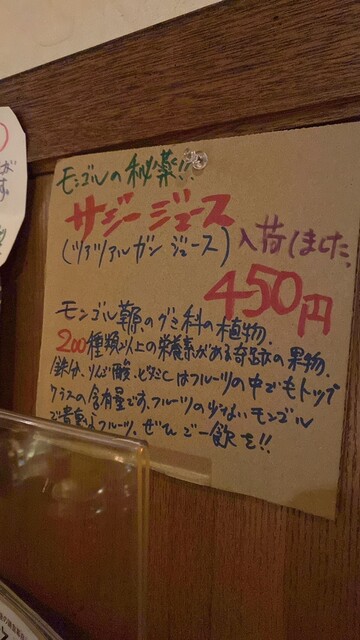 モンゴルの秘薬!!
サジージュース
(ツァツァルガンジュース)入荷しました。
450円
モンゴル草原のグミ科の植物.
200種類以上の栄養素がある奇跡の果物.
鉄分、りんご酸、ビタミンCはフルーツの中でもトップ
クラスの含有量です。フルーツの少ないモンゴル
で貴重なフルーツ、ぜひご一飲を!!